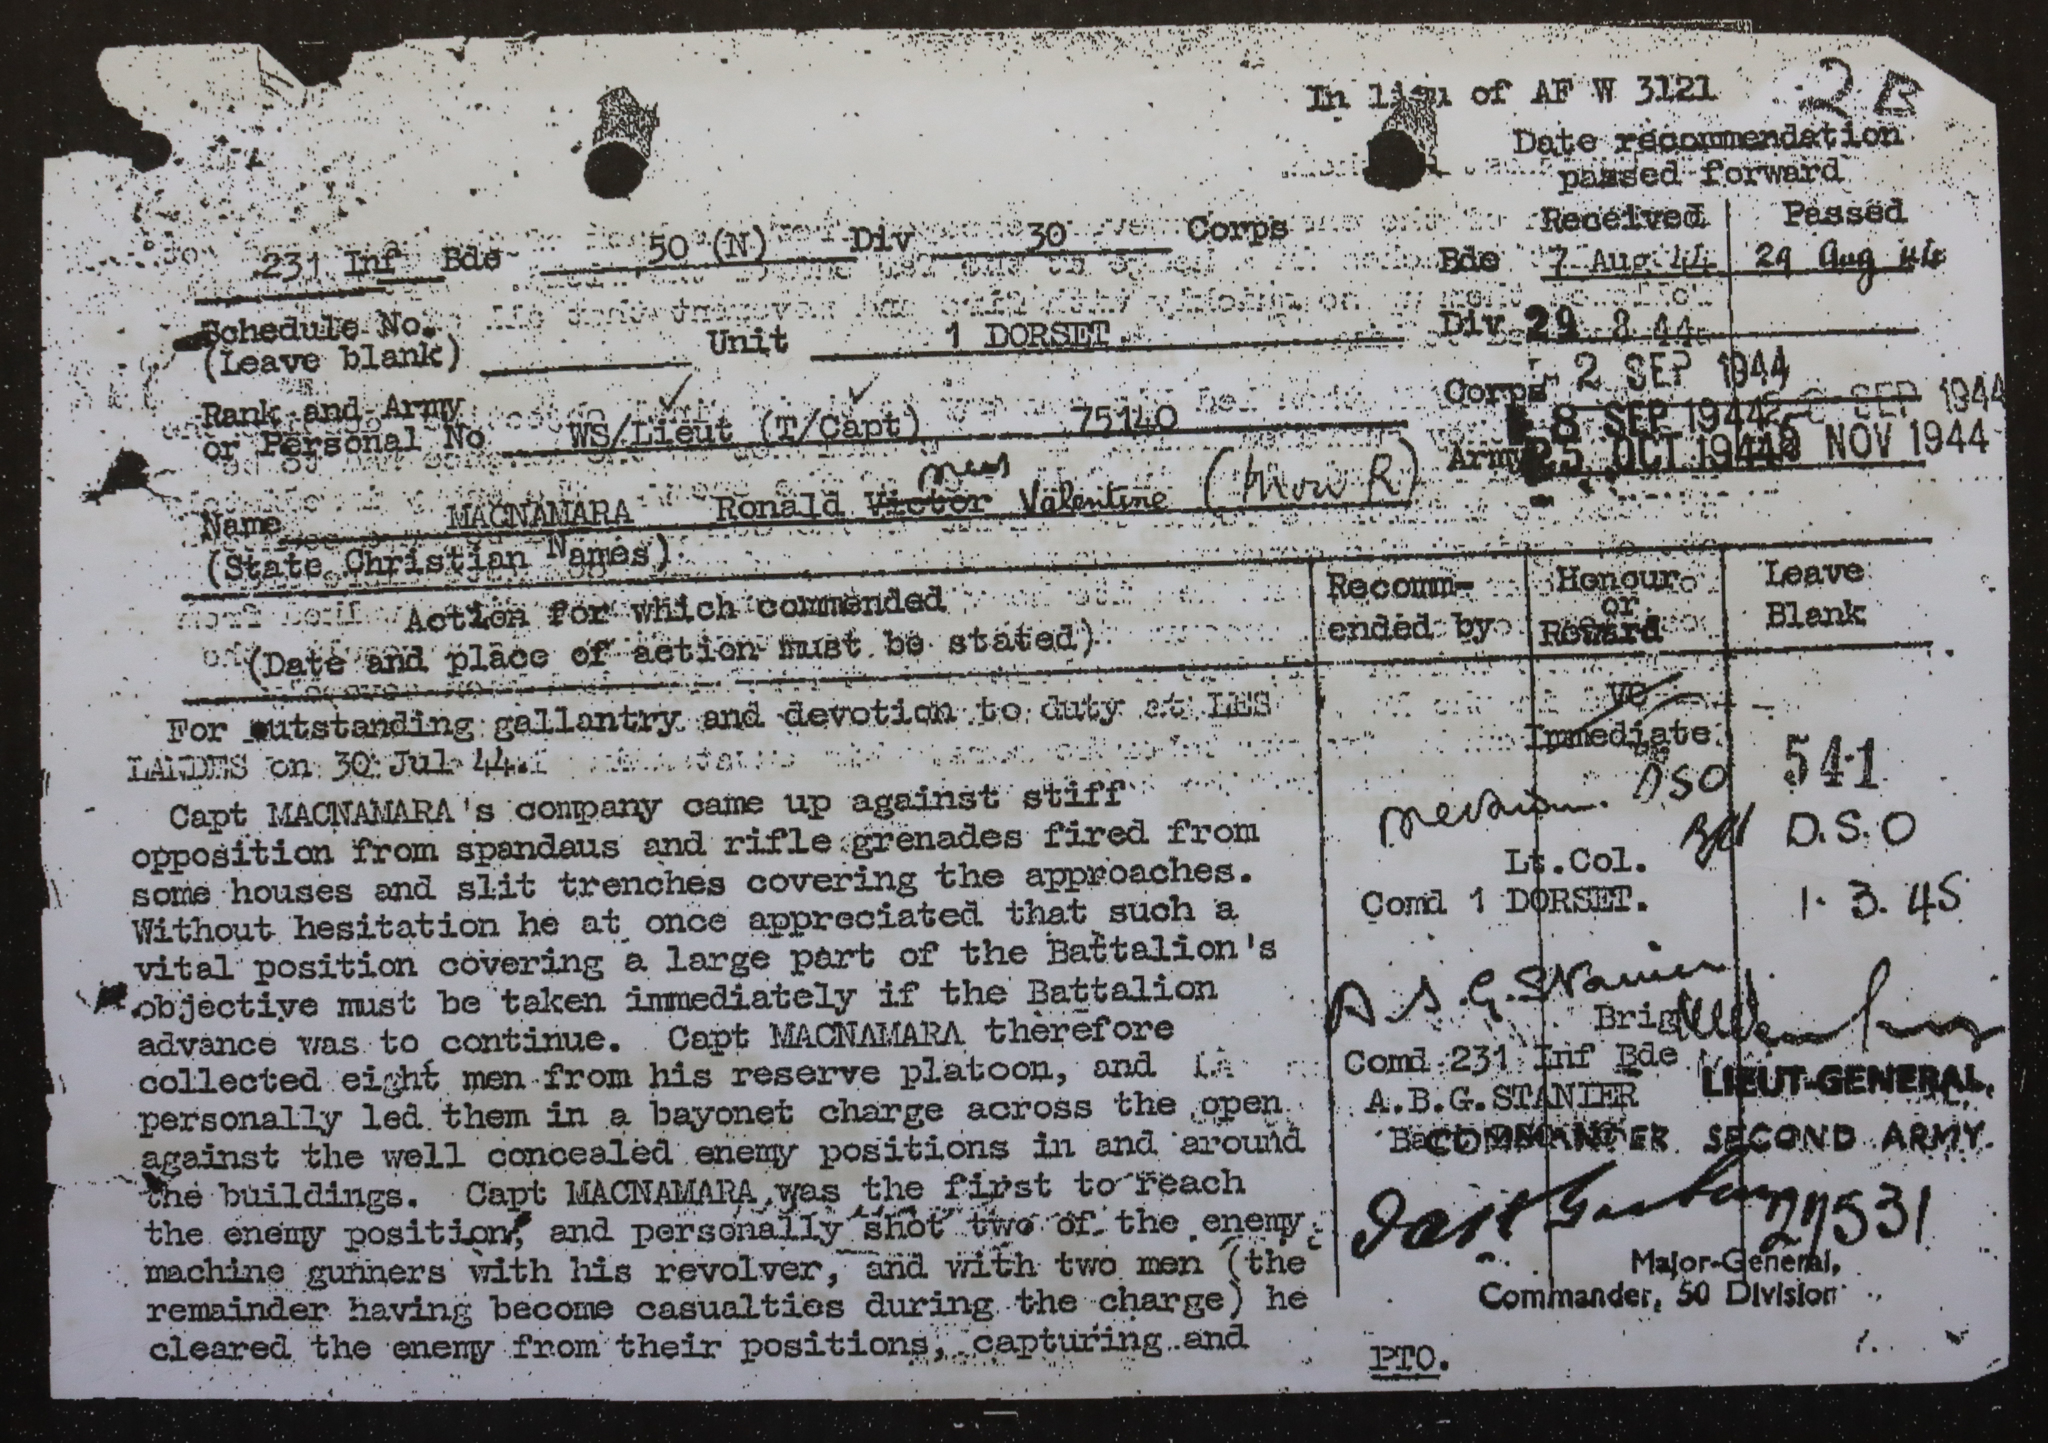 In lieu of AF W 3121
2B
Date recommendation
passed forward
Received Passed
231 Inf Bde 50 (N) Div 30 Corps
Bde 7 Aug 44 29 Aug 44
Schedule No.
(Leave blank) Unit 1 DORSET.
Div 29 8 44
Corps 2 SEP 1944
8 SEP 1944 SEP 1944
Rank and Army
or Personal No WS/Lieut (T/Capt) 75140
Army 25 OCT 1944 NOV 1944
Name MACNAMARA Ronald Victor Valentine
(State Christian Names)
Action for which commended
(Date and place of action must be stated)
Recomm-
ended by
Honour
or
Reward
Leave
Blank
For outstanding gallantry and devotion to duty at LES
LANDES on 30 Jul 44.
Capt MACNAMARA's company came up against stiff
opposition from spandaus and rifle grenades fired from
some houses and slit trenches covering the approaches.
Without hesitation he at once appreciated that such a
vital position covering a large part of the Battalion's
objective must be taken immediately if the Battalion
advance was to continue. Capt MACNAMARA therefore
collected eight men from his reserve platoon, and
personally led them in a bayonet charge across the open
against the well concealed enemy positions in and around
the buildings. Capt MACNAMARA was the first to reach
the enemy position, and personally shot two of the enemy
machine gunners with his revolver, and with two men (the
remainder having become casualties during the charge) he
cleared the enemy from their positions, capturing and
VC
Immediate
DSO
541
D.S.O
1.3.45
Lt.Col.
Comd 1 DORSET.
Brig
Comd 231 Inf Bde
A.B.G.STANIER
LIEUT-GENERAL,
COMMANDER SECOND ARMY.
27531
Major-General,
Commander, 50 Division
PTO.